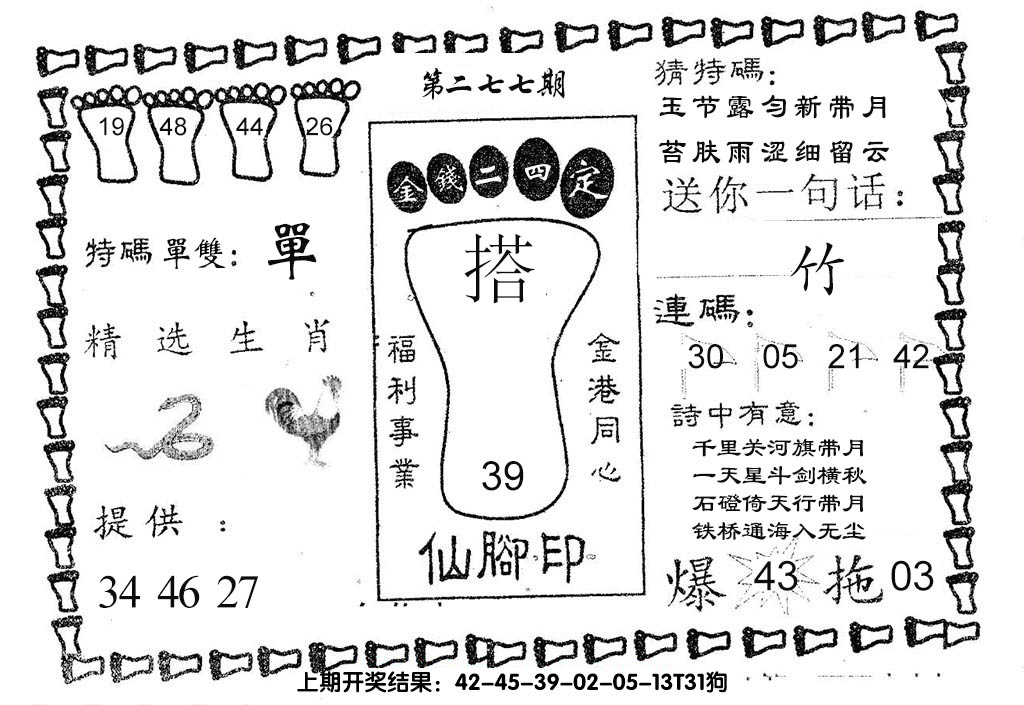 第二七七期
19 48 44 26
特碼單雙：單
精选生肖
提供：
34 46 27
金錢二四定
搭
福利事業
金港同心
39
仙腳印
猜特碼：
玉节露匀新带月
苔肤雨涩细留云
送你一句话：
竹
連碼：
30 05 21 42
詩中有意：
千里关河旗带月
一天星斗剑横秋
石磴倚天行带月
铁桥通海入无尘
爆 43 拖 03
上期开奖结果：42-45-39-02-05-13T31狗